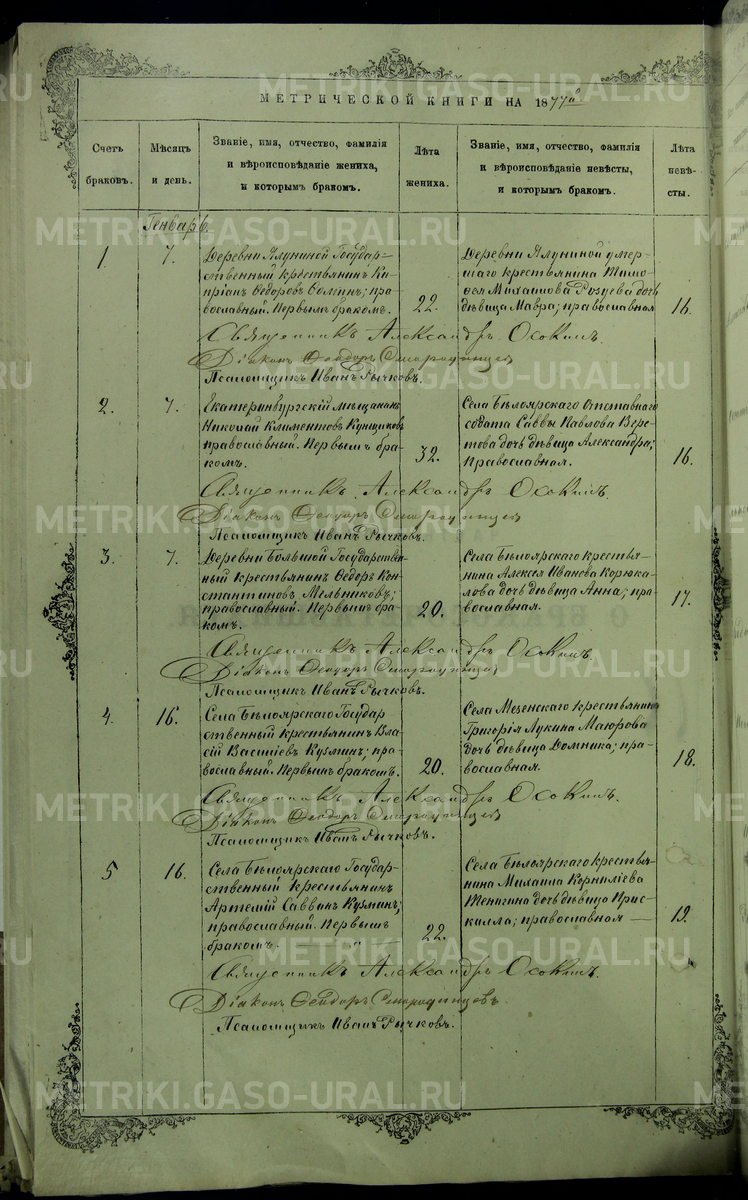 МЕТРИЧЕСКОЙ КНИГИ НА 1877й
Счетъ браковъ.
Мѣсяцъ и день.
Званіе, имя, отчество, фамилія
и вѣроисповѣданіе жениха,
и которымъ бракомъ.
Лѣта жениха.
Званіе, имя, отчество, фамилія
и вѣроисповѣданіе невѣсты,
и которымъ бракомъ.
Лѣта невѣсты.
Генварь.
1.
7.
Деревни Ялуниной Государ-
ственный крестьянинъ Ки-
пріанъ Ѳедоровъ; пра-
вославный. Первымъ бракомъ.
22.
Деревни Ялуниной умер-
шаго крестьянина Тимо-
ѳея Михаилова дочь
дѣвица Мавра; православная
16.
Священникъ Александръ Осокинъ.
Діаконъ Ѳеодоръ Смородинцевъ
Псаломщикъ Иванъ Рычковъ.
2.
7.
Екатеринбургскій мѣщанинъ
Николай Климентовъ
православный. Первымъ бра-
комъ.
32.
Села Бѣлоярскаго Отставнаго
солдата Саввы Павлова Вере-
това дочь дѣвица Александра;
Православная.
16.
Священникъ Александръ Осокинъ.
Діаконъ Ѳеодоръ Смородинцевъ
Псаломщикъ Иванъ Рычковъ.
3.
7.
Деревни Большой Государствен-
ный крестьянинъ Ѳедоръ Кон-
стантиновъ Мельниковъ;
православный. Первымъ бра-
комъ.
20.
Села Бѣлоярскаго крестья-
нина Алексѣя Иванова Корюка-
лова дочь дѣвица Анна; пра-
вославная.
17.
Священникъ Александръ Осокинъ.
Діаконъ Ѳеодоръ Смородинцевъ
Псаломщикъ Иванъ Рычковъ.
4.
16.
Села Бѣлоярскаго Государ
ственный крестьянинъ Вла-
сій Василіевъ Кузминъ; пра-
вославный. Первымъ бракомъ.
20.
Села Мезенскаго крестьянина
Григорія Лукина Маюрова
дочь дѣвица Домника; пра-
вославная.
18.
Священникъ Александръ Осокинъ.
Діаконъ Ѳеодоръ Смородинцевъ
Псаломщикъ Иванъ Рычковъ.
5
16.
Села Бѣлоярскаго Государ-
ственный крестьянинъ
Артемій Саввинъ Кузминъ;
православный. Первымъ
бракомъ.
22.
Села Бѣлоярскаго крестья-
нина Михаила Корниліева
дочь дѣвица Прис-
килла; православная
19.
Священникъ Александръ Осокинъ.
Діаконъ Ѳеодоръ Смородинцовъ
Псаломщикъ Иванъ Рычковъ.
METRIKI.GASO-URAL.RU